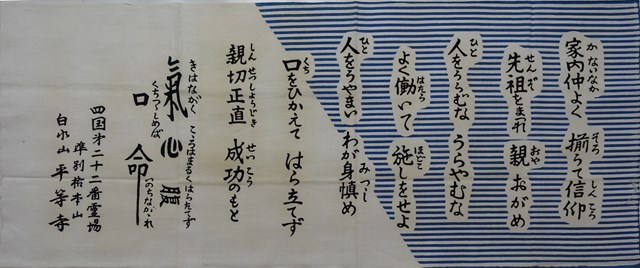 かないなか そろ しんこう
家内仲よく 揃うて信仰
せんぞ おや
先祖をまつれ 親おがめ
ひと
人をうらむな うらやむな
はたら ほどこ
よく働いて 施しをせよ
ひと みつつし
人をうやまい わが身慎め
くち
口をひかえて はら立てず
しんせつしょうじき せいこう
親切正直 成功のもと
きはながく こころはまるくはらたてず
氣 心 腹
くちつつしめば いのちながかれ
口 命
四国第二十二番霊場
準別格本山
白水山 平等寺